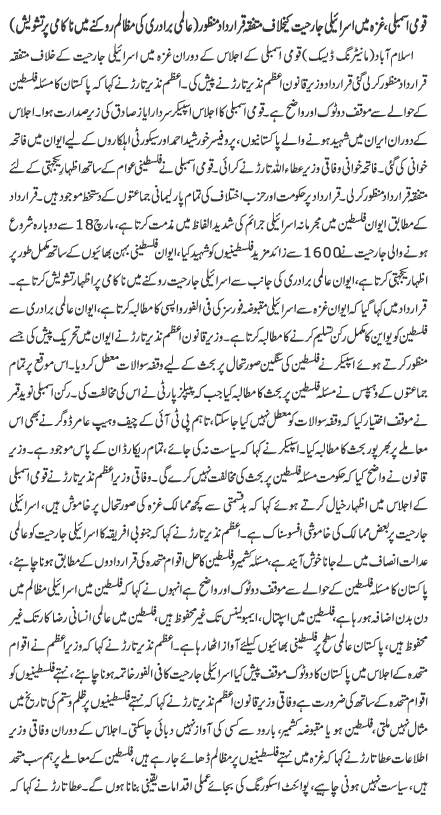 قومی اسمبلی، غزہ میں اسرائیلی جارحیت کیخلاف متفقہ قرارداد منظور (عالمی برادری کی مظالم روکنے میں ناکامی پر تشویش)
اسلام آباد (مانیٹرنگ ڈیسک) قومی اسمبلی کے اجلاس کے دوران غزہ میں اسرائیلی جارحیت کے خلاف متفقہ
قرارداد منظور کر لی گئی قرارداد وزیر قانون اعظم نذیر تارڑ نے پیش کی۔ اعظم نذیر تارڑ نے کہا کہ پاکستان کا مسئلہ فلسطین
کے حوالے سے موقف دوٹوک اور واضح ہے۔ قومی اسمبلی کا اجلاس اسپیکر سردار ایاز صادق کی زیر صدارت ہوا۔ اجلاس
کے دوران ایران میں شہید ہونے والے پاکستانیوں، پروفیسر خورشید احمد اور سیکورٹی اہلکاروں کے لیے ایوان میں فاتحہ
خوانی کی گئی۔ فاتحہ خوانی وفاقی وزیر عطاء اللہ تارڑ نے کرائی۔ قومی اسمبلی نے فلسطینی عوام کے ساتھ اظہار یکجہتی کے لئے
متفقہ قرارداد منظور کر لی۔ قرارداد پر حکومت اور حزب اختلاف کی تمام پارلیمانی جماعتوں کے دستخط موجود ہیں۔ قرارداد
کے مطابق ایوان فلسطین میں مجرمانہ اسرائیلی جرائم کی شدید الفاظ میں مذمت کرتا ہے، مارچ 18 سے دوبارہ شروع
ہونے والی جارحیت نے 1600 سے زائد مزید فلسطینیوں کو شہید کیا، ایوان فلسطینی بہن بھائیوں کے ساتھ مکمل طور پر
اظہار یکجہتی کرتا ہے، ایوان عالمی برادری کی جانب سے اسرائیلی جارحیت روکنے میں ناکامی پر اظہار تشویش کرتا ہے۔
قرارداد میں کہا گیا کہ ایوان غزہ سے اسرائیلی مقبوضہ فورسز کی فی الفور واپسی کا مطالبہ کرتا ہے، ایوان عالمی برادری سے
فلسطین کو یو این کا مکمل رکن تسلیم کرنے کا مطالبہ کرتا ہے۔ وزیر قانون اعظم نذیر تارڑ نے ایوان میں تحریک پیش کی جسے
منظور کرتے ہوئے اسپیکر نے فلسطین کی سنگین صورتحال پر بحث کے لیے وقفہ سوالات معطل کر دیا۔ اس موقع پر تمام
جماعتوں کے وہپس نے مسئلہ فلسطین پر بحث کا مطالبہ کیا جب کہ پیپلز پارٹی نے اس کی مخالفت کی۔ رکن اسمبلی نوید قمر
نے موقف اختیار کیا کہ وقفہ سوالات کو معطل نہیں کیا جا سکتا، تاہم پی ٹی آئی کے چیف وہپ عامر ڈوگر نے بھی اس
معاملے پر بھرپور بحث کا مطالبہ کیا۔ اسپیکر نے کہا کہ سیاست نہ کی جائے، تمام ریکارڈ ان کے پاس موجود ہے۔ وزیر
قانون نے واضح کیا کہ حکومت مسئلہ فلسطین پر بحث کی مخالفت نہیں کرے گی۔ وفاقی وزیر اعظم نذیر تارڑ نے قومی اسمبلی
کے اجلاس میں اظہار خیال کرتے ہوئے کہا کہ بدقسمتی سے کچھ ممالک غزہ کی صورتحال پر خاموش ہیں، اسرائیلی
جارحیت پر بعض ممالک کی خاموشی افسوسناک ہے۔ اعظم نذیر تارڑ نے کہا کہ جنوبی افریقہ کا اسرائیلی جارحیت کو عالمی
عدالت انصاف میں لے جانا خوش آئند ہے، مسئلہ کشمیر و فلسطین کا حل اقوام متحدہ کی قراردادوں کے مطابق ہونا چاہئے،
پاکستان کا مسئلہ فلسطین کے حوالے سے موقف دوٹوک اور واضح ہے انہوں نے کہا کہ فلسطین میں اسرائیلی مظالم میں
دن بدن اضافہ ہو رہا ہے، فلسطین میں اسپتال، ایمبولینس تک غیر محفوظ ہیں، فلسطین میں عالمی انسانی رضا کار تک غیر
محفوظ ہیں، پاکستان عالمی سطح پر فلسطینی بھائیوں کیلئے آواز اٹھا رہا ہے۔ اعظم نذیر تارڑ نے کہا کہ وزیر اعظم نے اقوام
متحدہ کے اجلاس میں پاکستان کا دوٹوک موقف پیش کیا اسرائیلی جارحیت کا فی الفور خاتمہ ہونا چاہئے، نہتے فلسطینیوں کو
اقوام متحدہ کے ساتھ کی ضرورت ہے وفاقی وزیر قانون اعظم نذیر تارڑ نے کہا کہ نہتے فلسطینیوں پر ظلم و ستم کی تاریخ میں
مثال نہیں ملتی، فلسطین ہو یا مقبوضہ کشمیر، بارود سے کسی کی آواز نہیں دبائی جا سکتی۔ اجلاس کے دوران وفاقی وزیر
اطلاعات عطا تارڑ نے کہا کہ غزہ میں نہتے فلسطینیوں پر مظالم ڈھائے جا رہے ہیں، فلسطین کے معاملے پر ہم سب متحد
ہیں، سیاست نہیں ہونی چاہیے، پوائنٹ اسکورنگ کی بجائے عملی اقدامات یقینی بنانا ہوں گے۔ عطا تارڑ نے کہا کہ